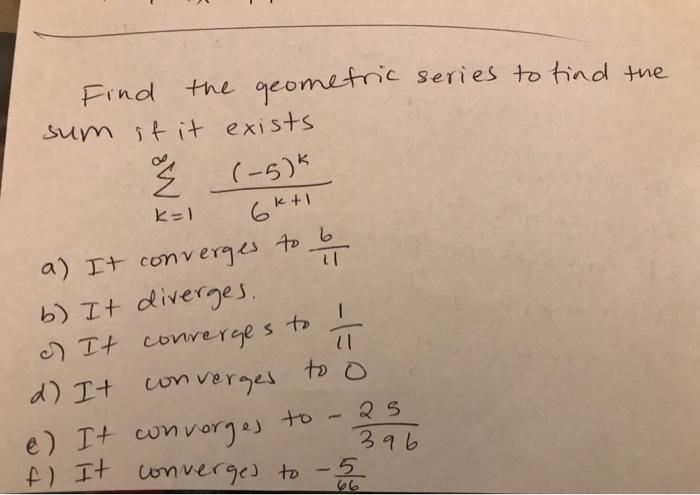 Find the geometric series to find the
sum if it exists
∞
Σ (-5)^k / 6^(k+1)
k=1
a) It converges to 6/11
b) It diverges.
c) It converges to 1/11
d) It converges to 0
e) It convorges to - 25/396
f) It converges to - 5/66